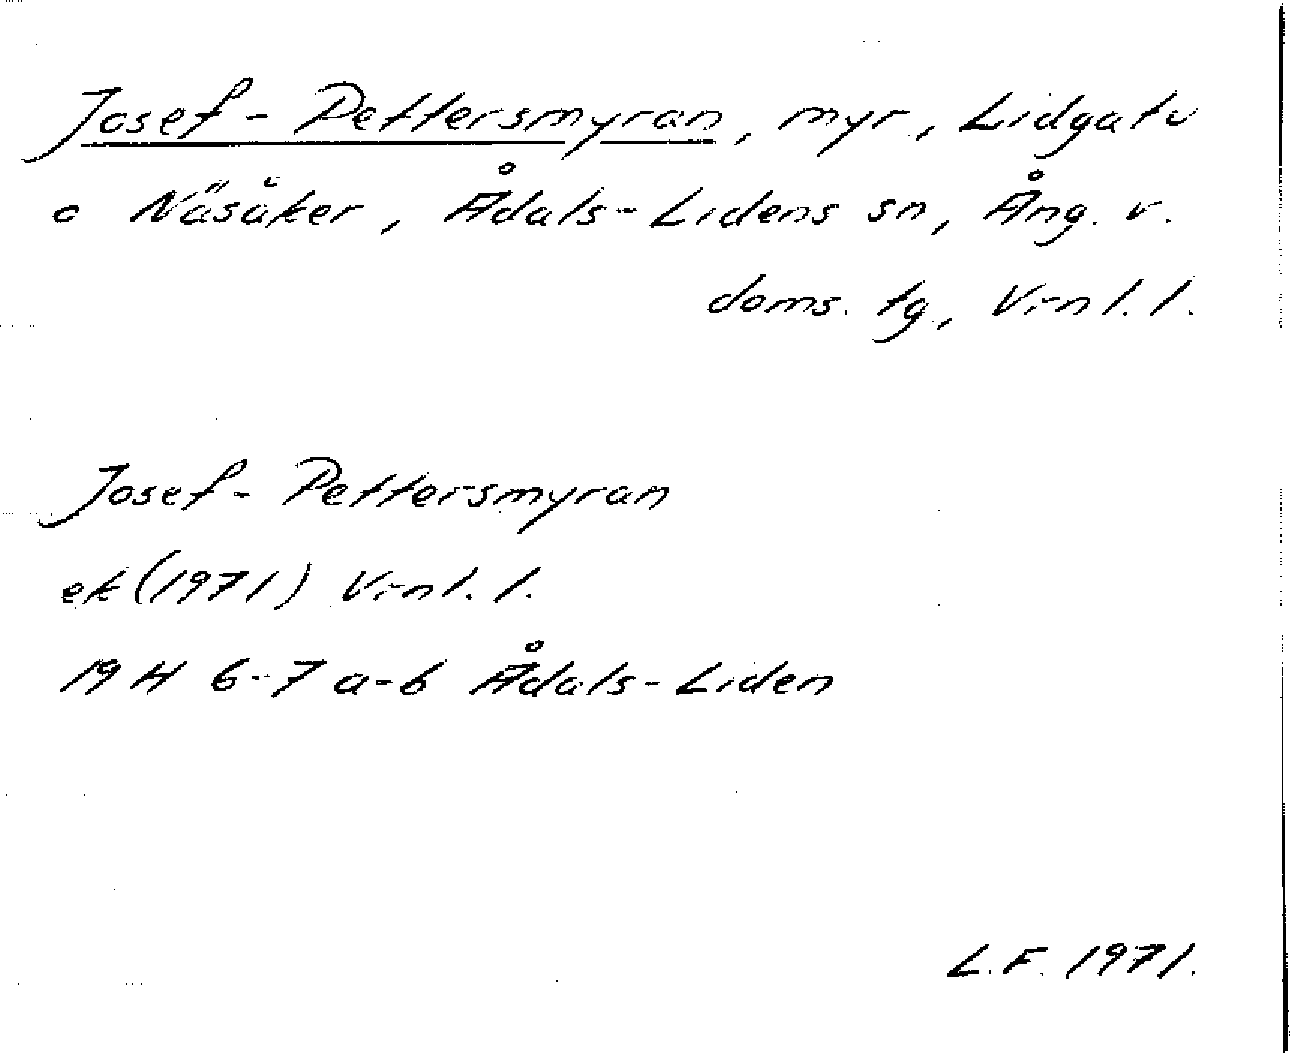 Josef-Pettersmyran, myr, Lidgatu
o Näsåker, Ådals-Lidens sn, Ång. v.
doms. tg, Vrnl. l.
Josef-Pettersmyran
ek (1971) Vrnl. l.
19 H 6-7 a-b Ådals-Liden
L.F. 1971.